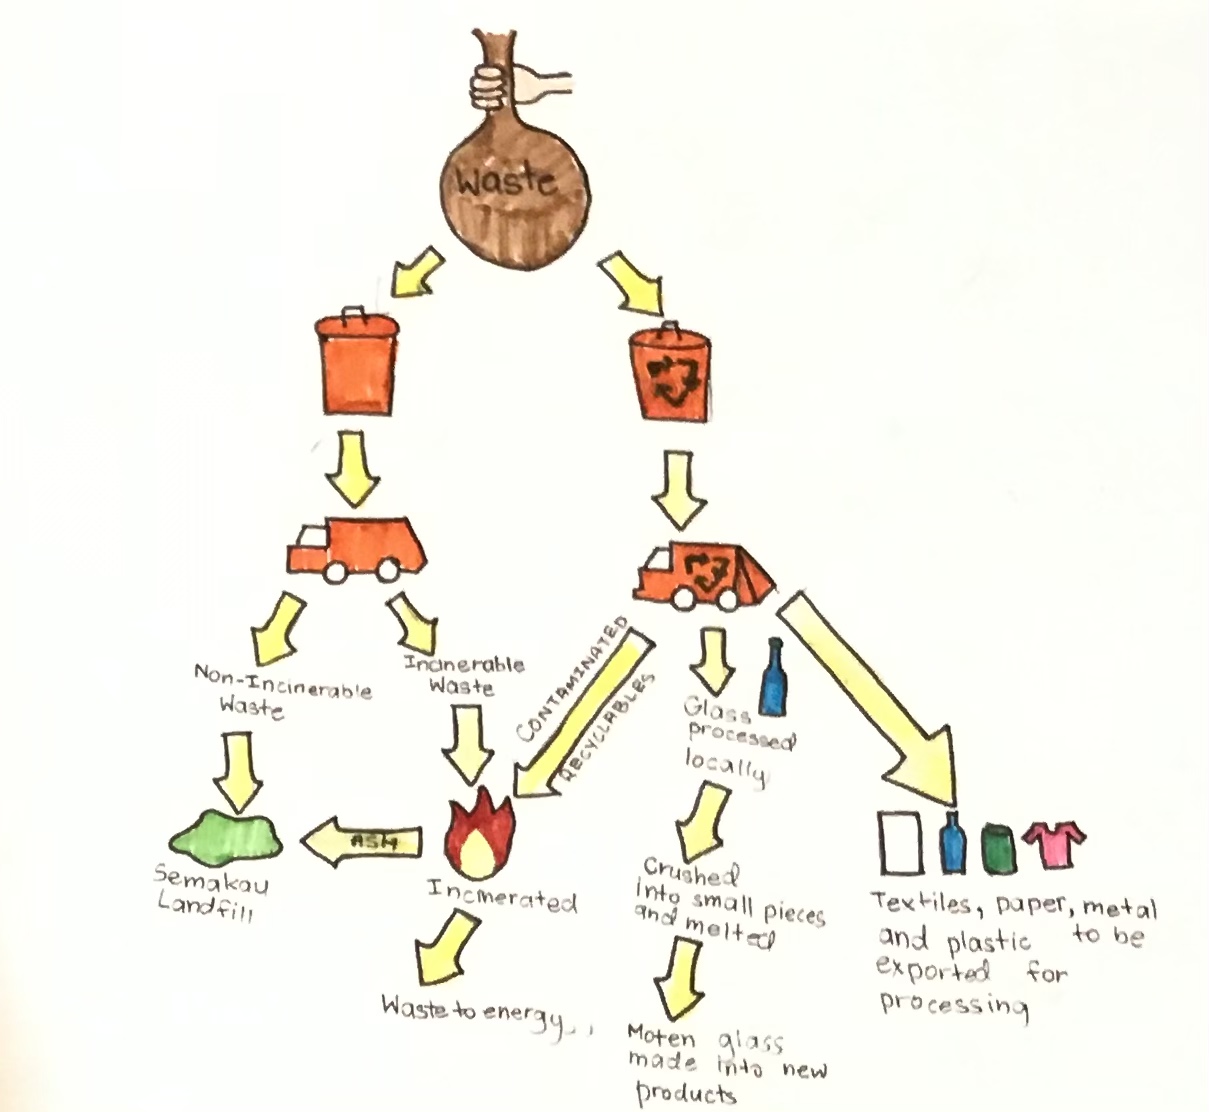 Waste
Non-Incinerable
Waste
Incinerable
Waste
CONTAMINATED
RECYCLABLES
Glass
processed
locally
ASH
Semakau
Landfill
Incinerated
Crushed
into small pieces
and melted
Textiles, paper, metal
and plastic to be
exported for
processing
Waste to energy
Moten glass
made into new
products